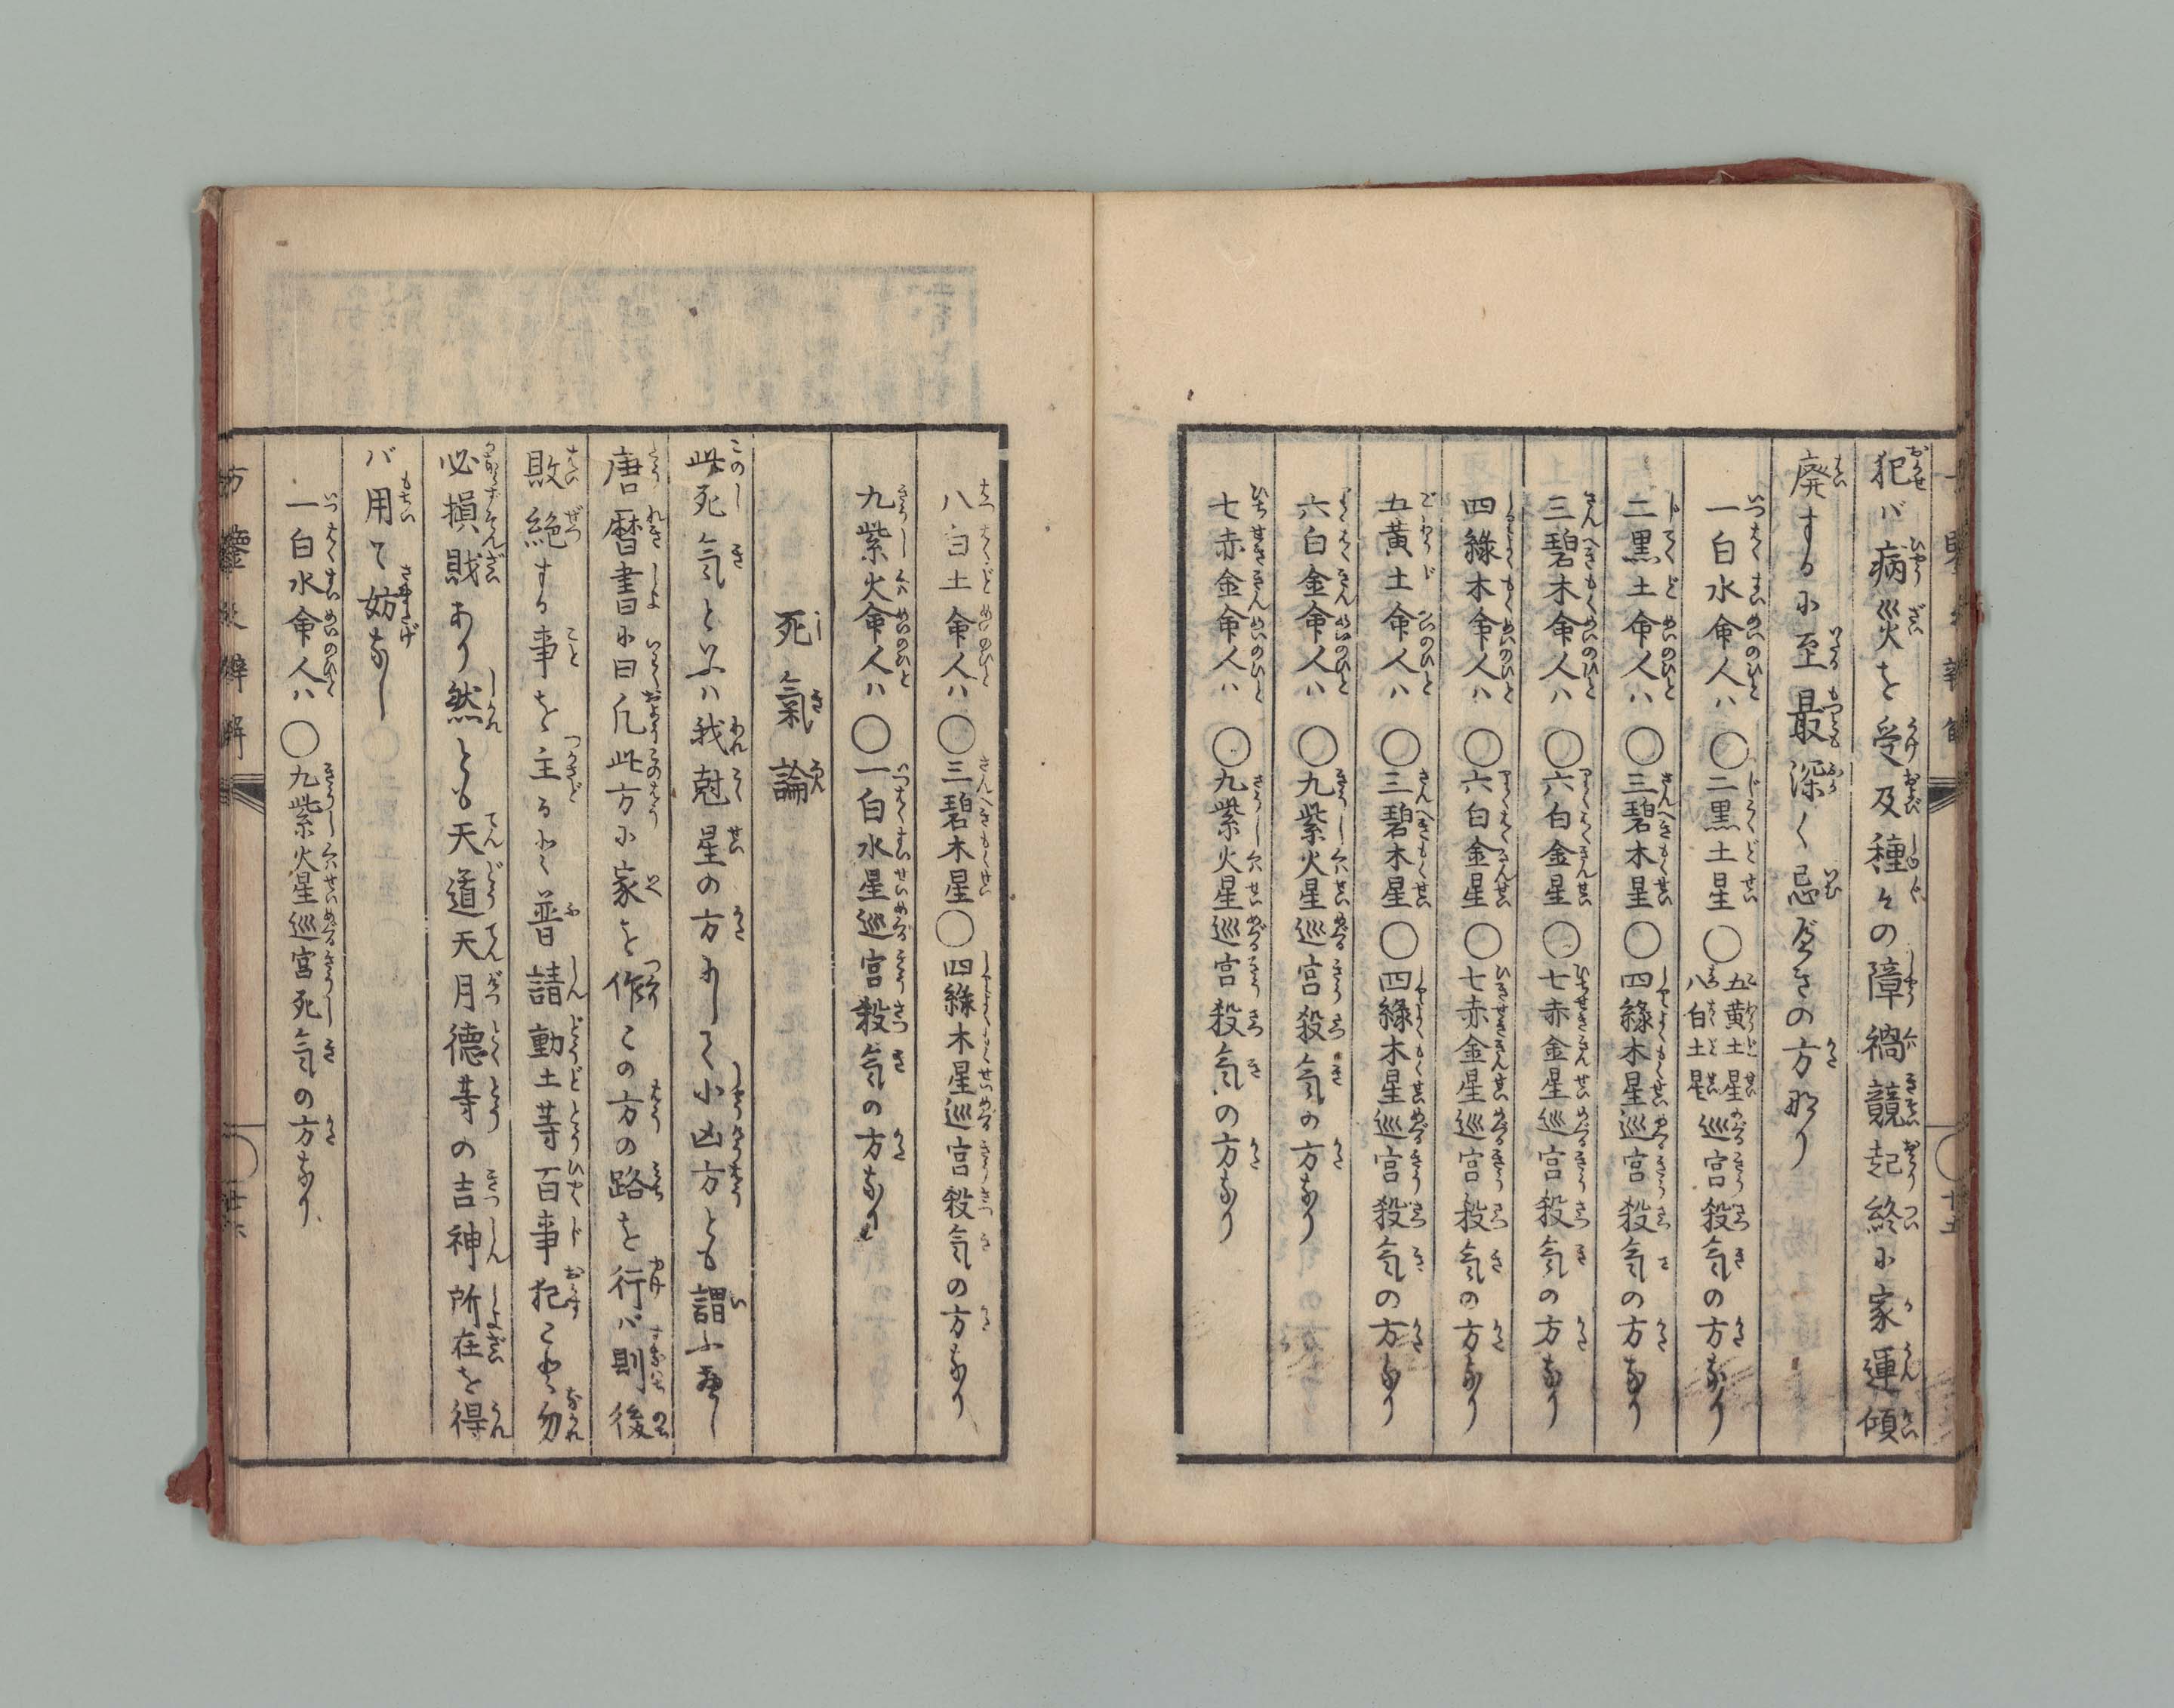 犯バ病災を受及種々の障禍競起終に家運傾
廃するに至最深く忌べきの方那り
一白水命人ハ〇二黒土星〇五黄土星八白土星巡宮殺気の方なり
二黒土命人ハ〇三碧木星〇四緑木星巡宮殺気の方なり
三碧木命人ハ〇六白金星〇七赤金星巡宮殺気の方なり
四緑木命人ハ〇六白金星〇七赤金星巡宮殺気の方なり
五黄土命人ハ〇三碧木星〇四緑木星巡宮殺気の方なり
六白金命人ハ〇九紫火星巡宮殺気の方なり
七赤金命人ハ〇九紫火星巡宮殺気の方なり
八白土命人ハ〇三碧木星〇四緑木星巡宮殺気の方なり
九紫火命人ハ〇一白水星巡宮殺気の方なり
死氣論
此死気といふハ我尅星の方にして小凶方とも謂ふべし
唐暦書に曰凡此方に家を作この方の路を行バ則後
敗絶する事を主る也普請動土等百事犯こと勿
必損戝あり然とも天道天月徳等の吉神所在を得
バ用て妨なし
一白水命人ハ〇九紫火星巡宮死気の方なり
方鑒
辨解